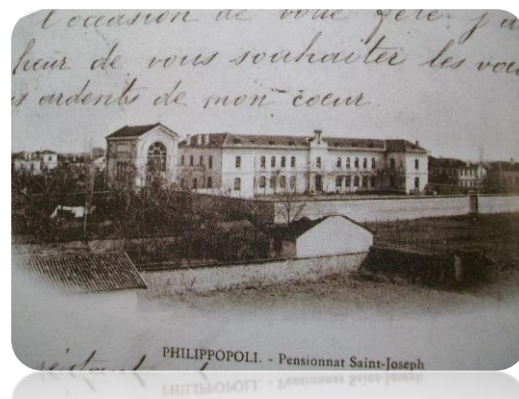 l'occasion de votre fête. j'
heur de vous souhaiter les voe
s ardents de mon coeur
PHILIPPOPOLI. - Pensionnat Saint-Joseph